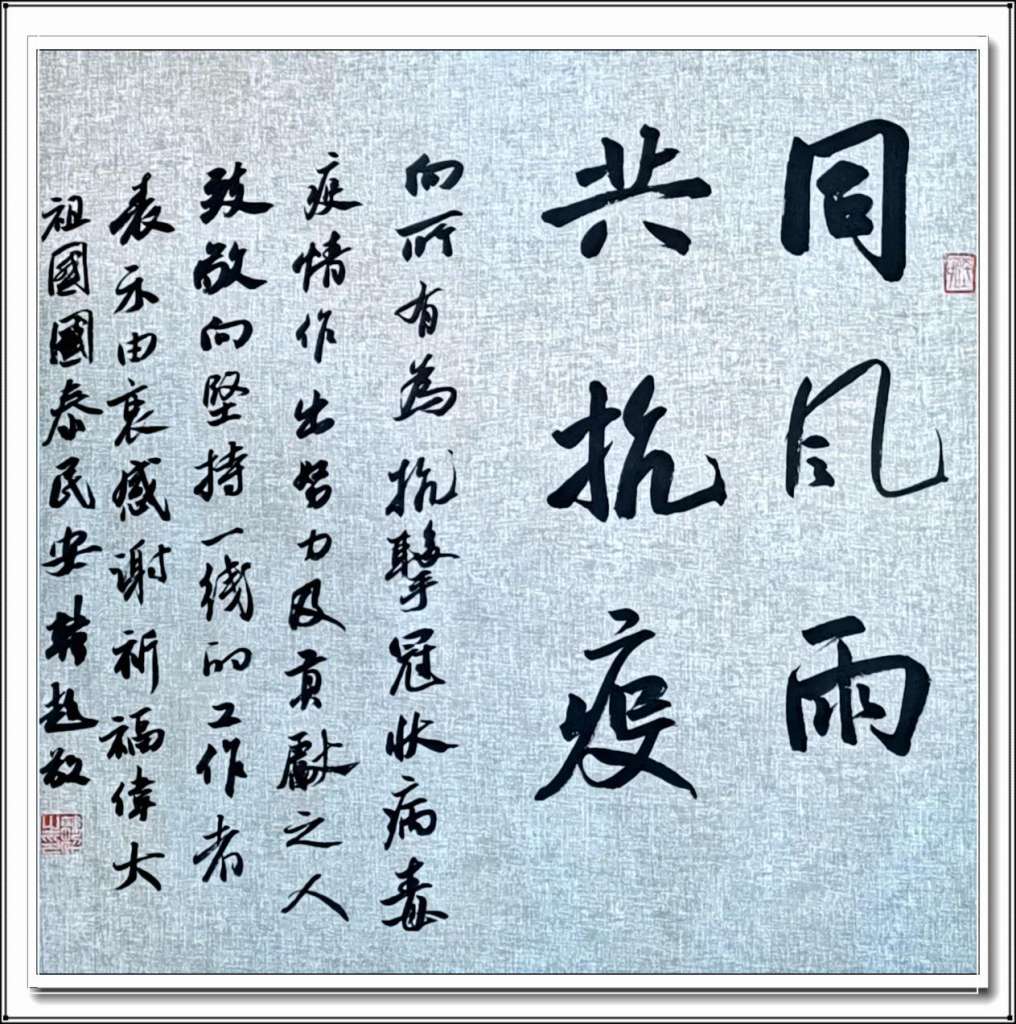 同风雨
共抗疫
向所有為抗擊冠状病毒
疫情作出努力及貢獻之人
致敬向堅持一线的工作者
表示由衷感谢祈福偉大
祖國國泰民安韩